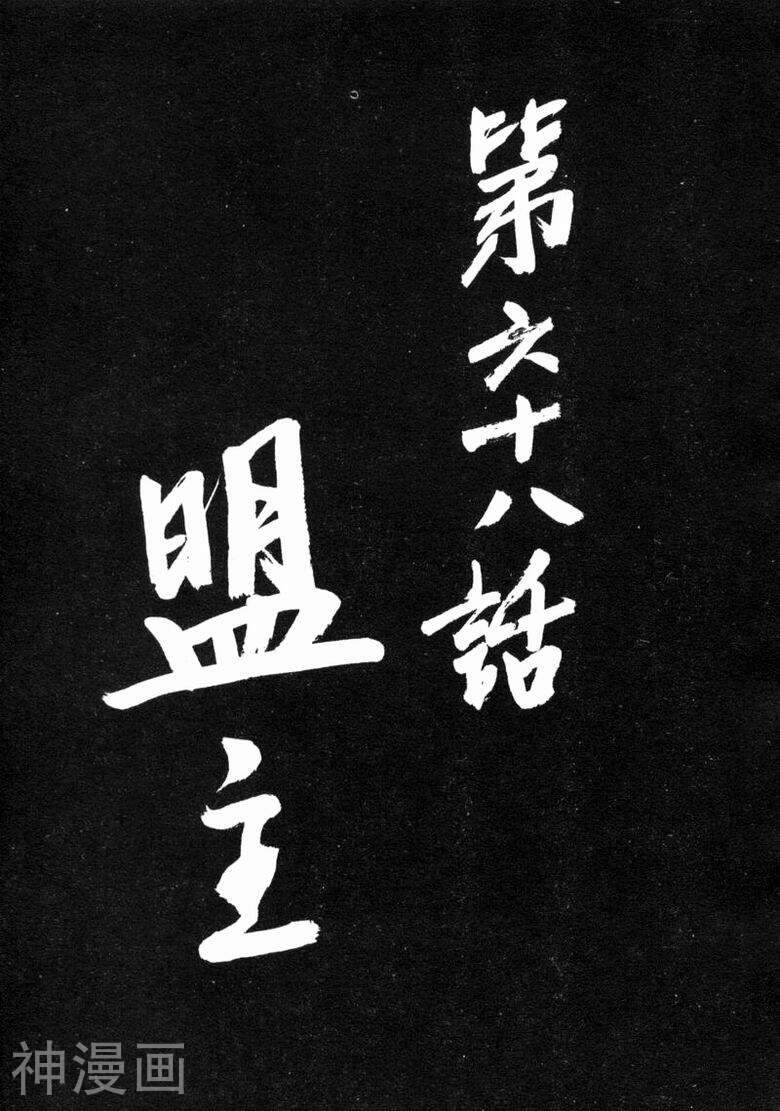 第六十八話
盟主
神漫画